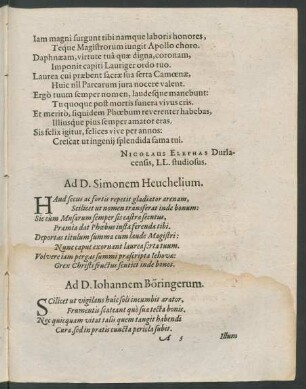 Iam magni surgunt tibi namque laboris honores,
Teque Magistrorum iungit Apollo choro.
Daphnæam, virtute tuâ quæ digna, coronam,
Imponit capiti Lauriger ordo tuo.
Laurea cui præbent sacræ sua serta Camœnæ,
Huic nil Parcarum jura nocere valent.
Ergò tuum semper nomen, laudesque manebunt:
Tu quoque post mortis funera vivus eris.
Et meritò, siquidem Phœbum reverenter habebas,
Illiusque pius semper amator eras.
Sis felix igitur, felices vive per annos:
Crescat ut ingenij splendida fama tui.
NICOLAUS ELEPHAS Durla-
censis, LL. studiosus.
Ad D. Simonem Heuchelium.
HAud secus ac fortis repetit gladiator arenam,
Scilicet ut nomen transferat inde bonum:
Sic tùm Musarum semper sis castra secutus,
Præmia dat Phœbus instà ferenda tibi.
Deportas titulum summa cum laude Magistri:
Nunc caput exornant laurea serta tuum.
Vulvere iam pergas summi præscripta Iehovæ:
Grex Christi fructus sentiet inde bonos.
Ad D. Iohannem Böringerum.
SCilicet ut vigilans huic soli incumbit arator,
Frumentis scateant quò sua tecta bonis,
Nec quisquam vitat talis quem tangit habendi
Cura, sed in pratis cuncta pericla subit.
A 3 Illum